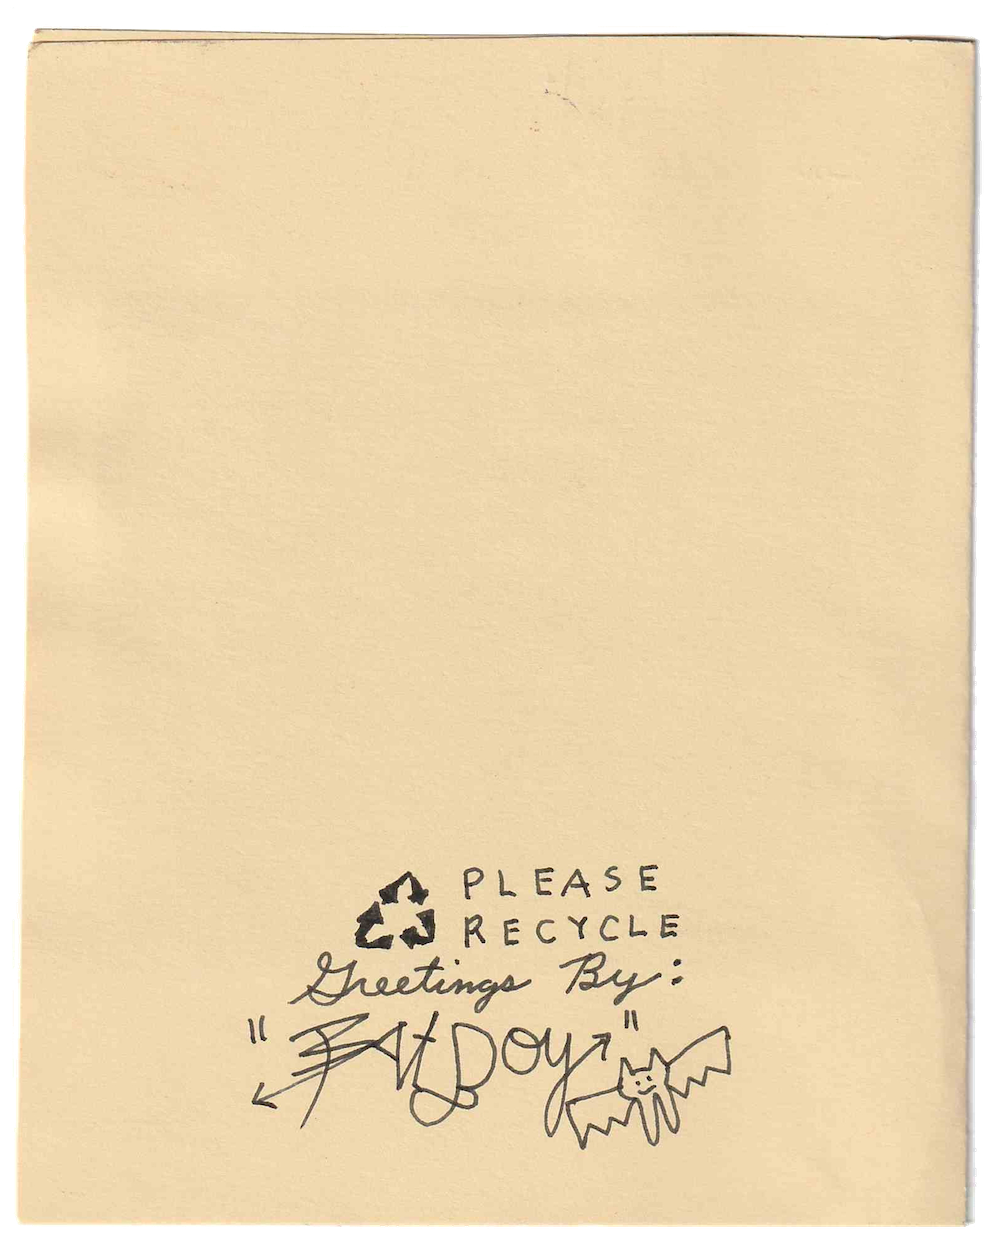 PLEASE
RECYCLE
Greetings By:
"BAtBoy"